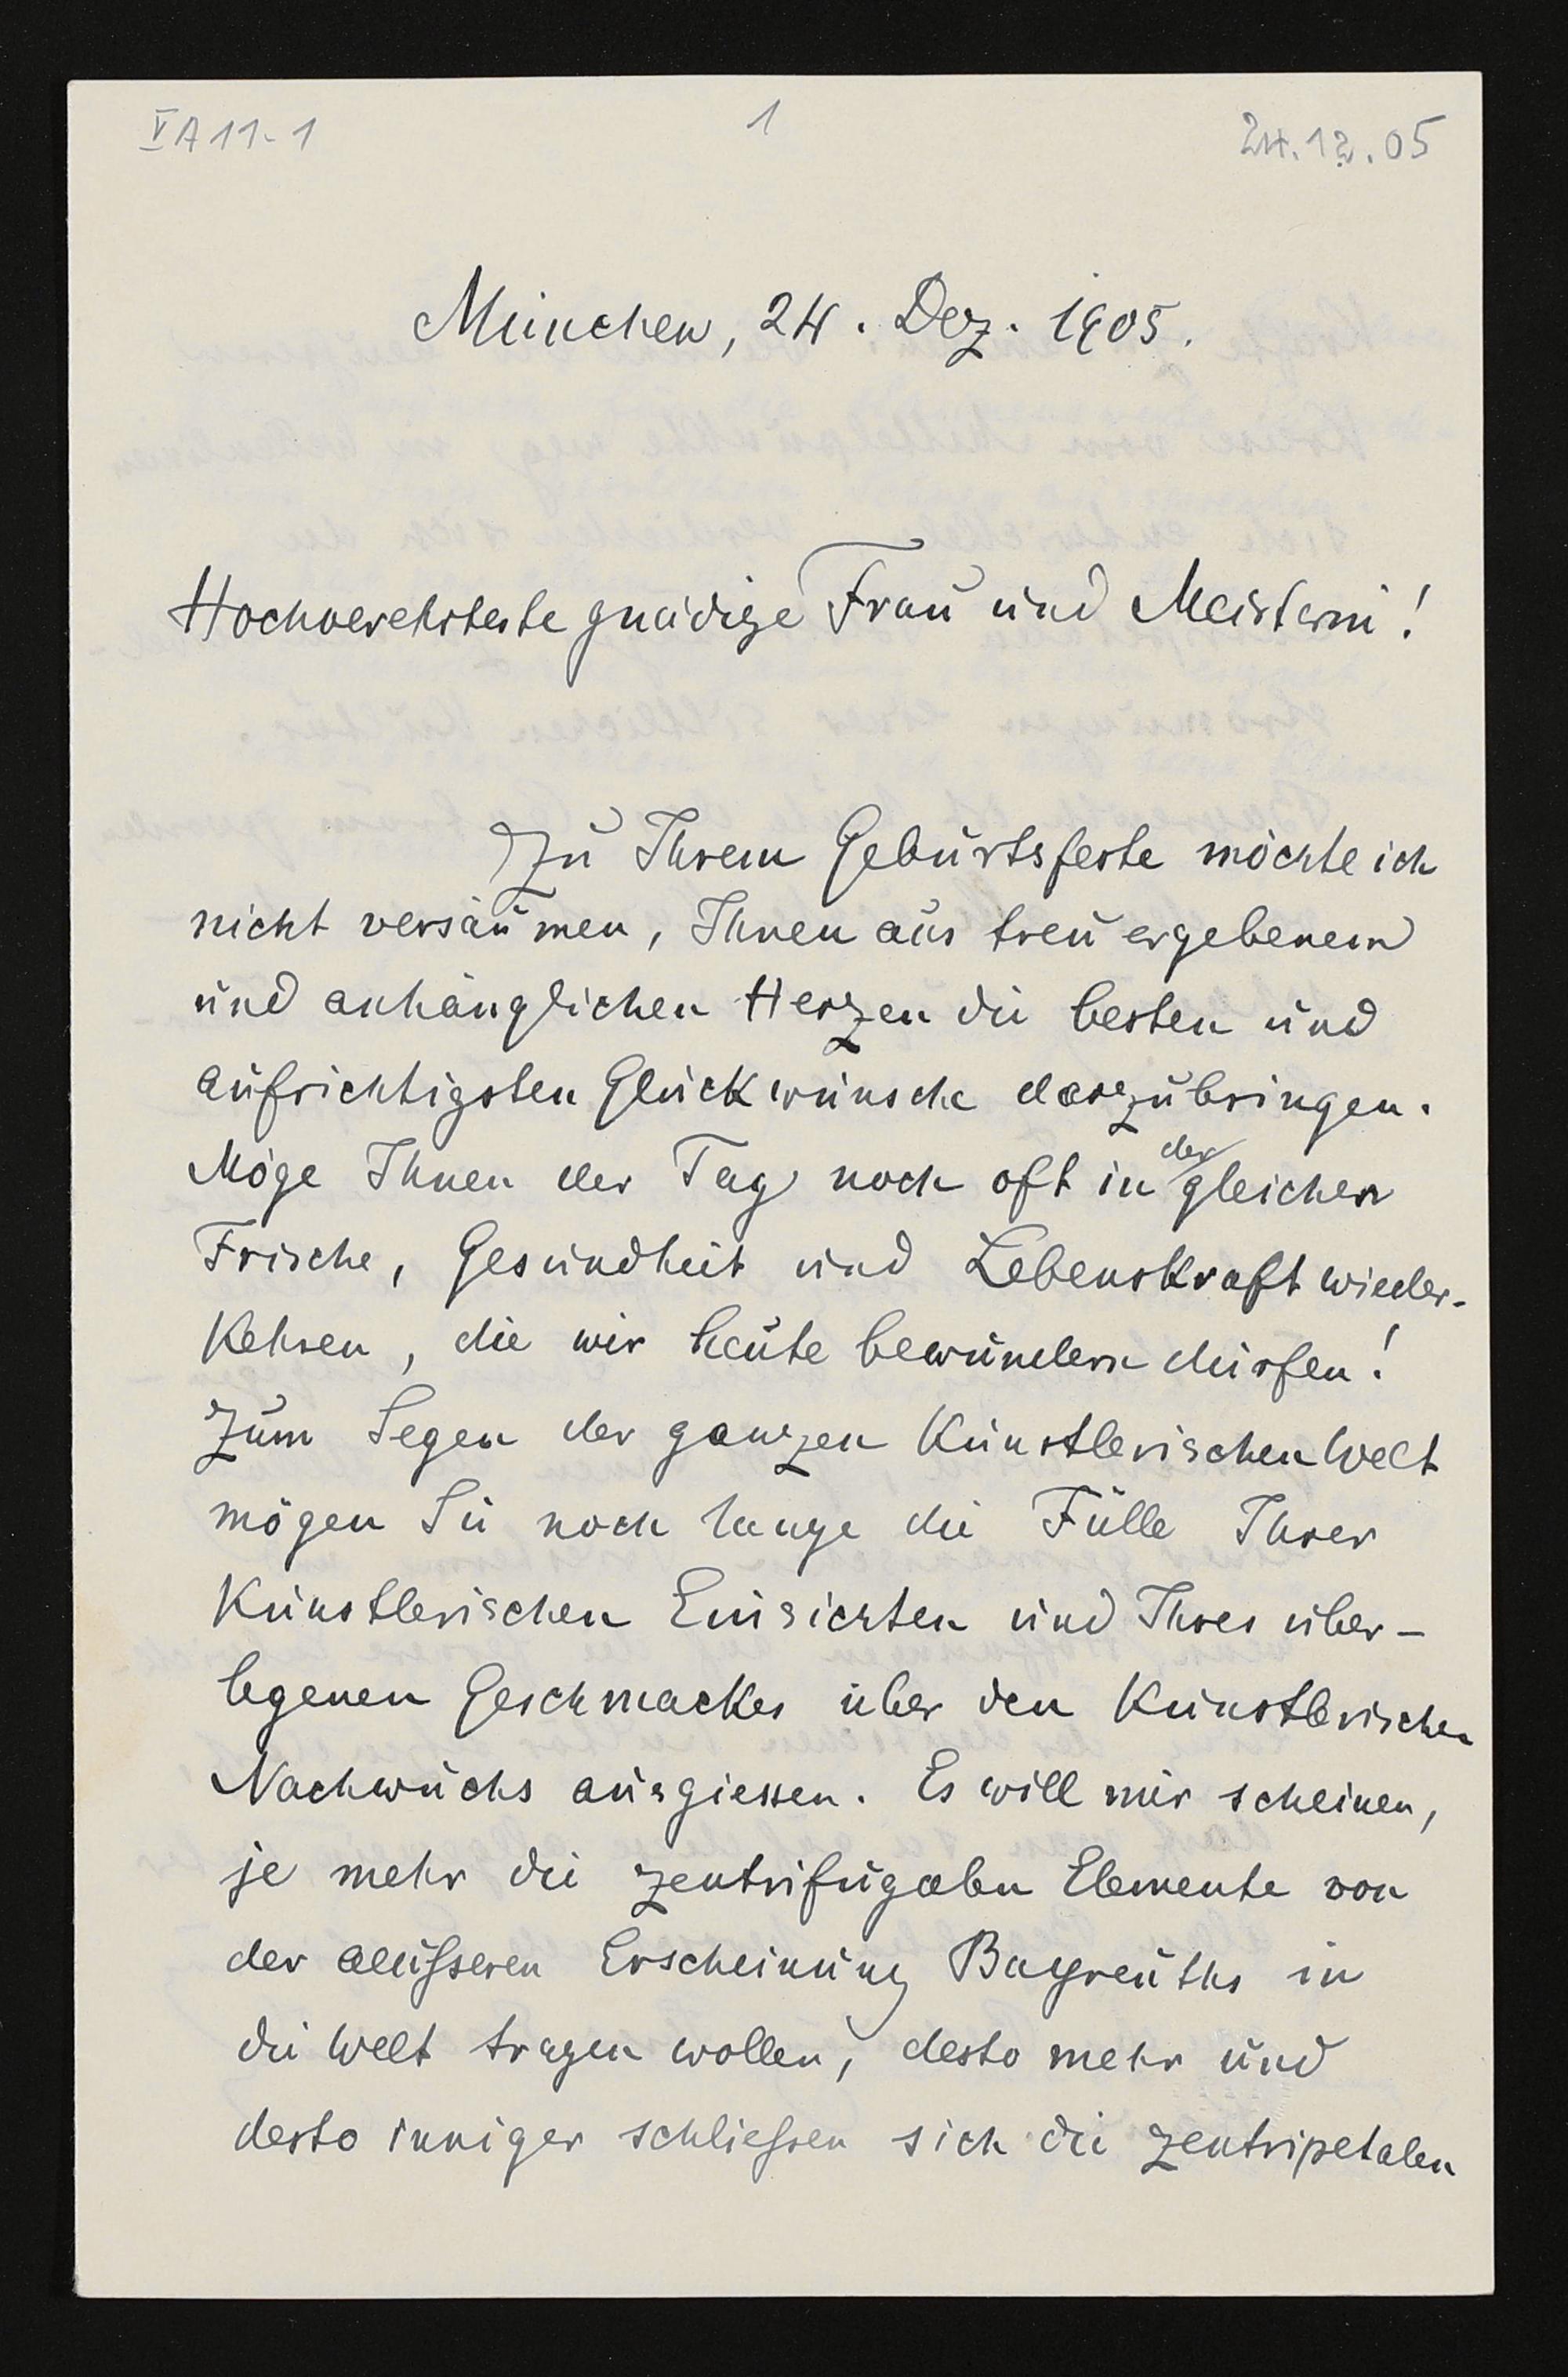 VA11-1
1
24.12.05
München, 24. Dez. 1905.
Hochverehrteste gnädige Frau und Meisterin!
Zu Ihrem Geburtsfeste möchte ich
nicht versäumen, Ihnen aus treu ergebenem
und anhänglichen Herzen die besten und
aufrichtigsten Glückwünsche darzubringen.
Möge Ihnen der Tag noch oft in der gleichen
Frische, Gesundheit und Lebenskraft wieder-
kehren, die wir heute bewundern dürfen!
Zum Segen der ganzen künstlerischen Welt
mögen Sie noch lange die Fülle Ihrer
künstlerischen Einsichten und Ihres über-
legenen Geschmackes über den künstlerischen
Nachwuchs ausgiessen. Es will mir scheinen,
je mehr die zentrifugalen Elemente von
der aeußeren Erscheinung Bayreuths in
die Welt tragen wollen, desto mehr und
desto inniger schließen sich die zentripetalen